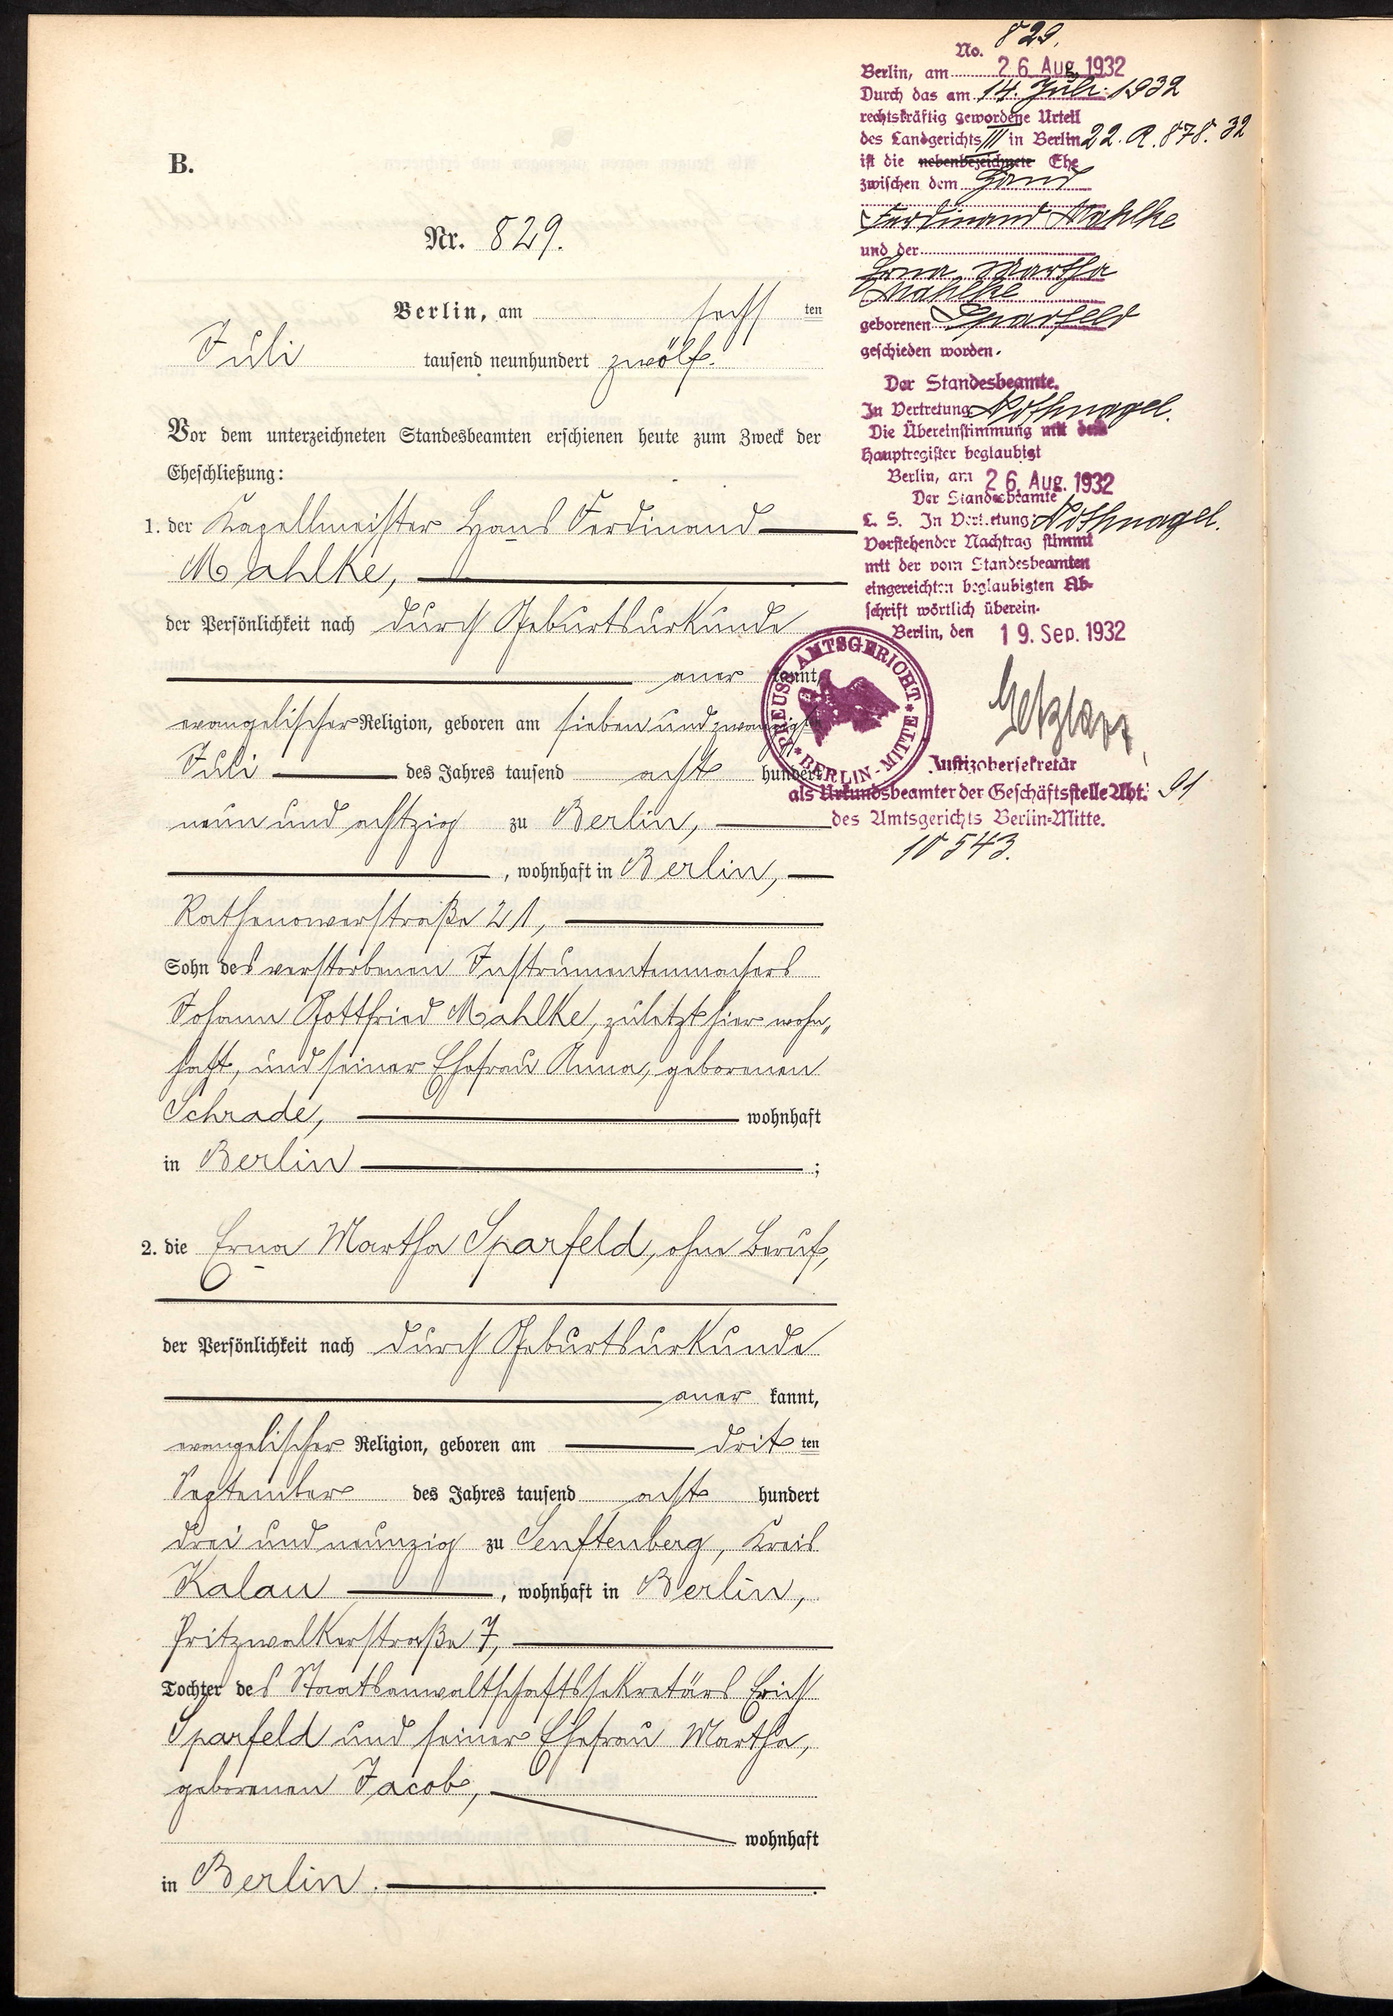 B.
Nr. 829.
Berlin, am sechsten
Juli tausend neunhundert zwölf.
Vor dem unterzeichneten Standesbeamten erschienen heute zum Zweck der
Eheschließung:
1. der Kapellmeister Hans Ferdinand
Mahlke,
der Persönlichkeit nach durch Geburtsurkunde
anerkannt,
evangelischer Religion, geboren am sieben und zwanzigsten
Juli des Jahres tausend acht hundert
neun und achtzig zu Berlin,
, wohnhaft in Berlin,
Rathenowerstraße 21,
Sohn des verstorbenen Instrumentenmachers
Johann Gottfried Mahlke, zuletzt hier wohn„
haft, und seiner Ehefrau Anna, geborenen
Schrade, wohnhaft
in Berlin ;
2. die Erna Martha Sparfeld, ohne Beruf,
der Persönlichkeit nach durch Geburtsurkunde
anerkannt,
evangelischer Religion, geboren am dritten
September des Jahres tausend acht hundert
drei und neunzig zu Senftenberg, Kreis
Kalau , wohnhaft in Berlin,
Pritzwalkerstraße 7,
Tochter des Staatsanwaltschaftssekretärs Erich
Sparfeld und seiner Ehefrau Martha,
geborenen Jacob,
wohnhaft
in Berlin.
No. 829.
Berlin, am 26. Aug. 1932
Durch das am 14. Juli 1932
rechtskräftig gewordene Urteil
des Landgerichts III in Berlin 22. R. 878. 32
ist die nebenbezeichnete Ehe
zwischen dem Hans
Ferdinand Mahlke
und der
Erna Martha
Mahlke
geborenen Sparfeld
geschieden worden.
Der Standesbeamte.
In Vertretung Nothnagel.
Die Übereinstimmung mit dem
Hauptregister beglaubigt
Berlin, am 26. Aug. 1932
Der Standesbeamte
L. S. In Vertretung: Nothnagel.
Vorstehender Nachtrag stimmt
mit der vom Standesbeamten
eingereichten beglaubigten Ab-
schrift wörtlich überein.
Berlin, den 19. Sep. 1932
PREUSS. AMTSGERICHT * BERLIN-MITTE *
Justizobersekretär
als Urkundsbeamter der Geschäftsstelle Abt. 91
des Amtsgerichts Berlin-Mitte.
10543.